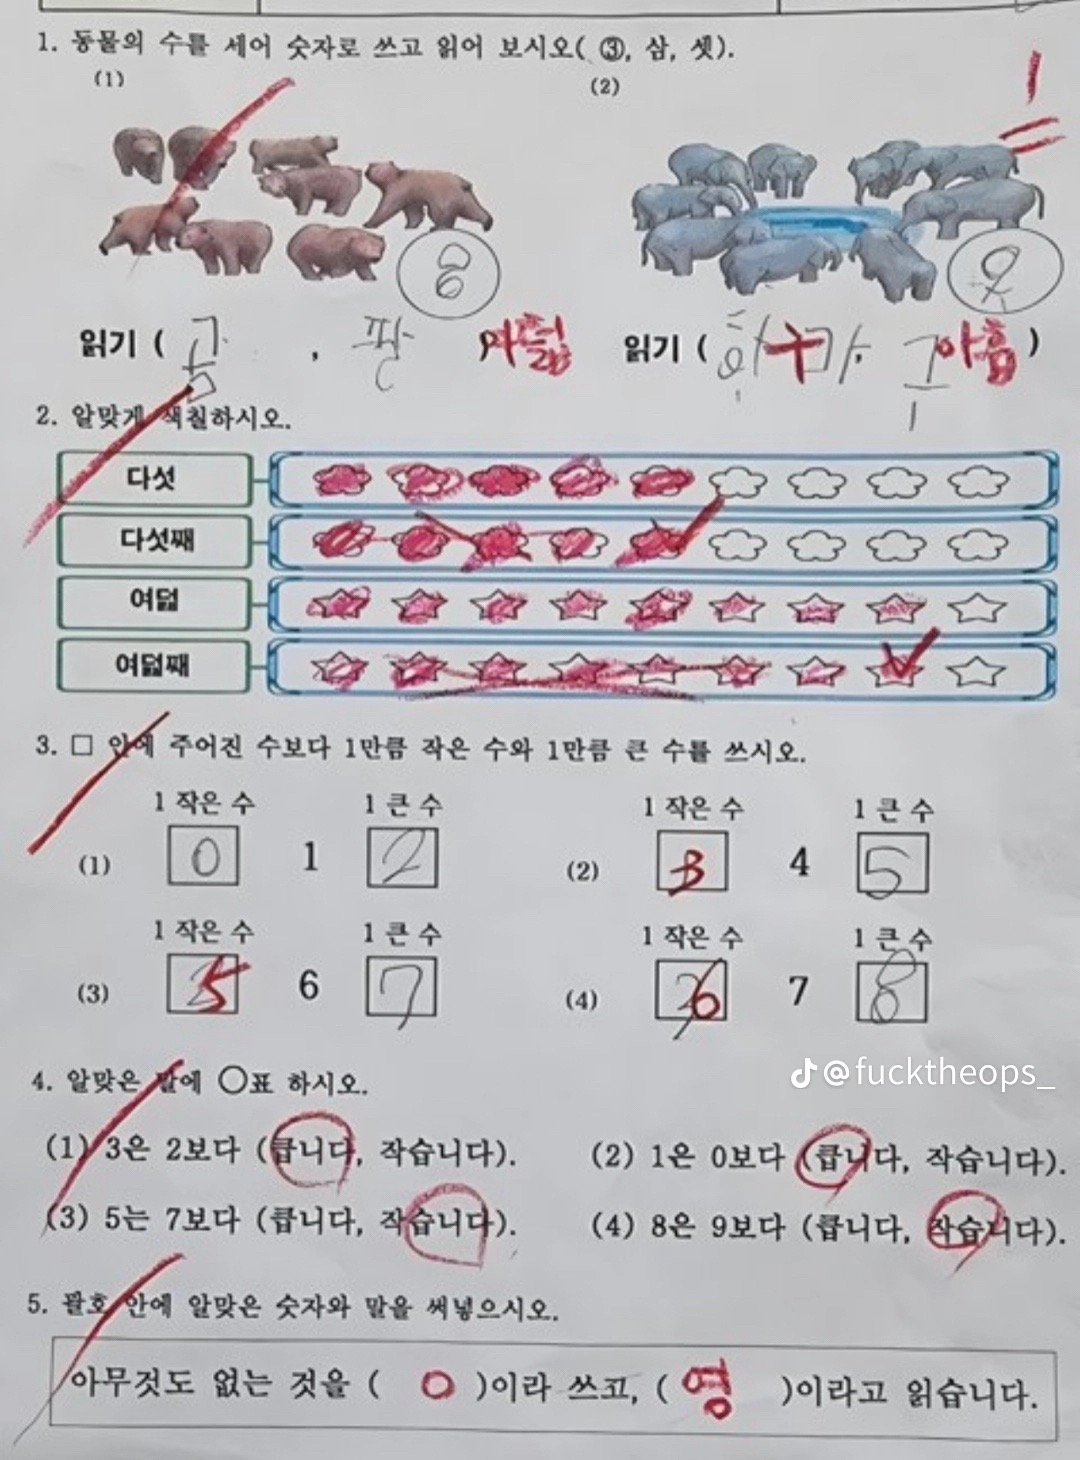 1. 동물의 수를 세어 숫자로 쓰고 읽어 보시오( ③, 삼, 셋).
(1) (2)
8 9
읽기 ( 곰 , 팔 ) 여덟 읽기 ( 구 아홉 )
2. 알맞게 색칠하시오.
다섯
다섯째
여덟
여덟째
3. □ 안에 주어진 수보다 1만큼 작은 수와 1만큼 큰 수를 쓰시오.
1 작은 수 1 큰 수 1 작은 수 1 큰 수
(1) 0 1 2 (2) 3 4 5
1 작은 수 1 큰 수 1 작은 수 1 큰 수
(3) 5 6 7 (4) 6 7 8
4. 알맞은 말에 ○표 하시오.
@fucktheops_
(1) 3은 2보다 (큽니다, 작습니다). (2) 1은 0보다 (큽니다, 작습니다).
(3) 5는 7보다 (큽니다, 작습니다). (4) 8은 9보다 (큽니다, 작습니다).
5. 괄호 안에 알맞은 숫자와 말을 써넣으시오.
아무것도 없는 것을 ( 0 )이라 쓰고, ( 영 )이라고 읽습니다.